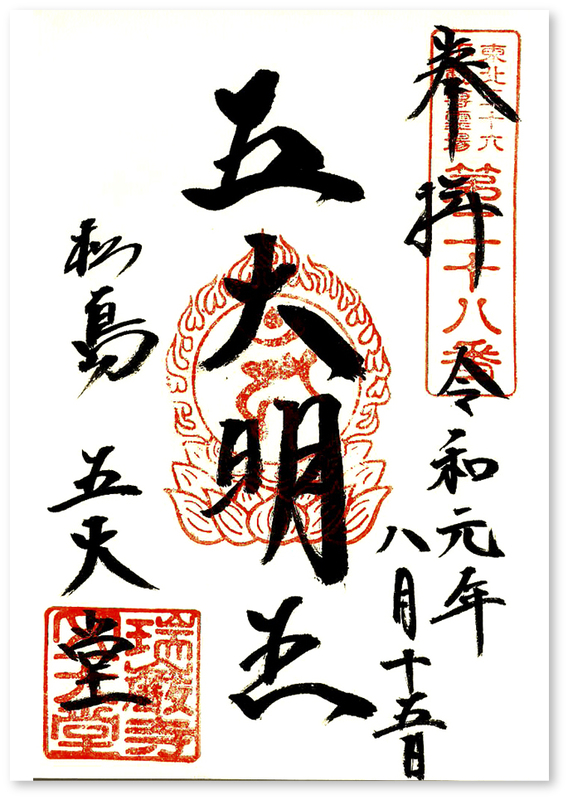 奉拝 令和元年
八月十五日
東北三十六
不動尊霊場
第二十八番
五大明王
松島 五大堂
瑞巌寺
五大堂